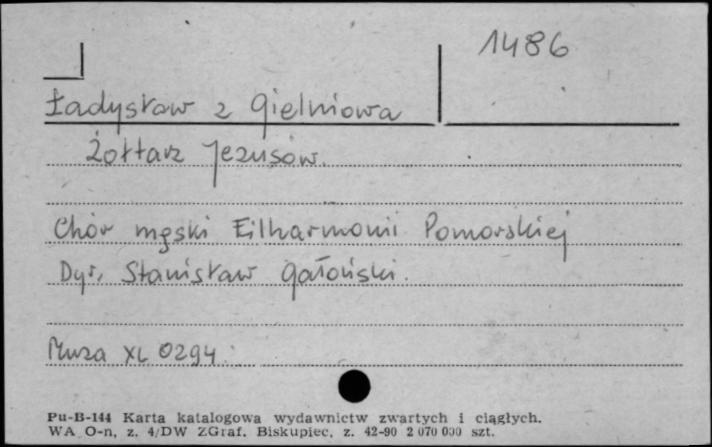 1486
Ładysław z Gielniowa
Żołtarz Jezusów.
Chór męski Filharmonii Pomorskiej
Dyr. Stanisław Gałoński.
Muza XL 0294.
Pu-B-144 Karta katalogowa wydawnictw zwartych i ciągłych.
WA O-n, z. 4/DW ZGraf. Biskupiec, z. 42-90 2 070 000 szt.